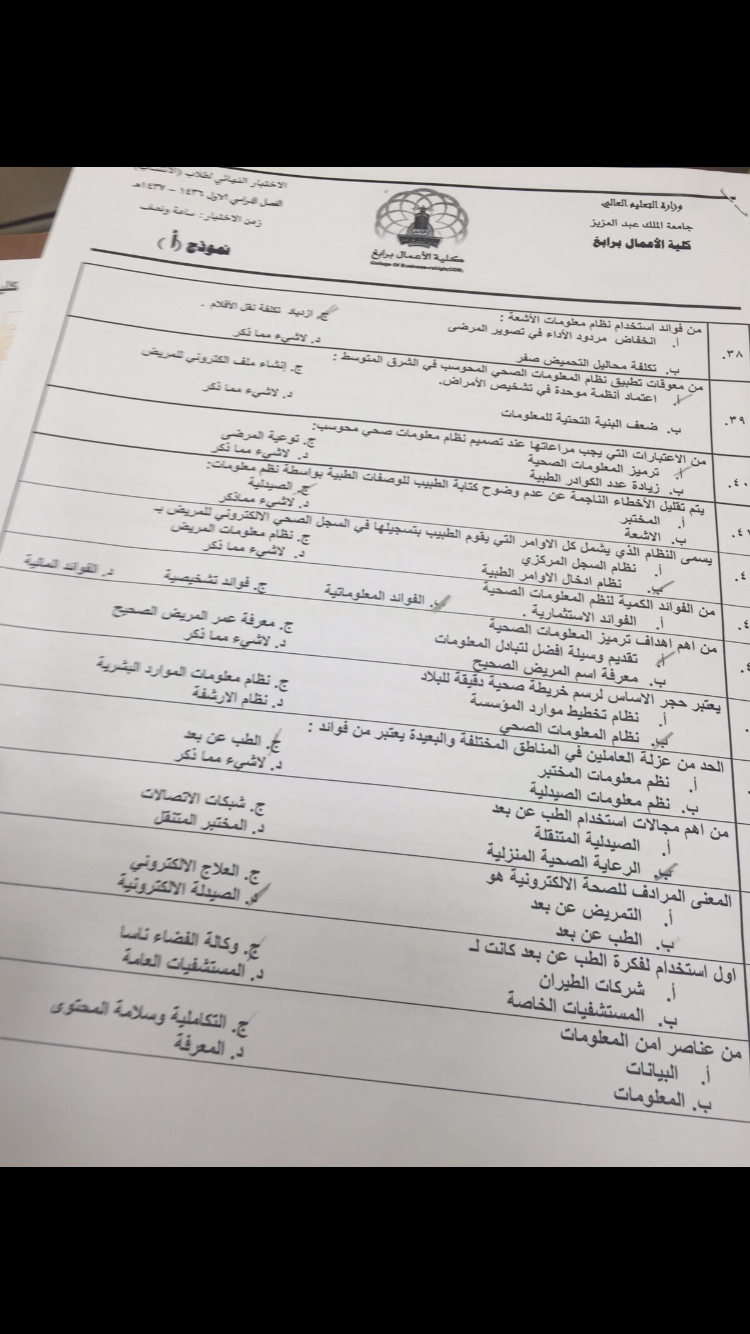 وزارة التعليم العالي
جامعة الملك عبد العزيز
كلية الأعمال برابغ
كلية الأعمال برابغ
College Of Business-rabigh(COB)
الاختبار النهائي لطلاب
الفصل الدراسي الاول ١٤٣٦ - ١٤٣٧هـ
زمن الاختبار: ساعة ونصف
نموذج (أ)
٣٨. من فوائد استخدام نظام معلومات الأشعة :
أ. انخفاض مردود الأداء في تصوير المرضى
ج. ازدياد تكلفة نقل الأفلام .
ب. تكلفة محاليل التحميض صفر
د. لاشيء مما ذكر
٣٩. من معوقات تطبيق نظام المعلومات الصحي المحوسب في الشرق المتوسط :
أ. اعتماد أنظمة موحدة في تشخيص الأمراض.
ج. إنشاء ملف الكتروني للمريض
ب. ضعف البنية التحتية للمعلومات
د. لاشيء مما ذكر
٤٠. من الاعتبارات التي يجب مراعاتها عند تصميم نظام معلومات صحي محوسب:
أ. ترميز المعلومات الصحية
ج. توعية المرضى
ب. زيادة عدد الكوادر الطبية
د. لاشيء مما ذكر
يتم تقليل الأخطاء الناجمة عن عدم وضوح كتابة الطبيب للوصفات الطبية بواسطة نظم معلومات:
أ. المختبر
ج. الصيدلية
ب. الاشعة
د. لاشيء مماذكر
يسمى النظام الذي يشمل كل الاوامر التي يقوم الطبيب بتسجيلها في السجل الصحي الالكتروني للمريض بـ
أ. نظام السجل المركزي
ج. نظام معلومات المريض
ب. نظام ادخال الاوامر الطبية
د. لاشيء مما ذكر
من الفوائد الكمية لنظم المعلومات الصحية
أ. الفوائد الاستثمارية .
ب. الفوائد المعلوماتية
ج. فوائد تشخيصية
د. الفوائد المالية
من اهم اهداف ترميز المعلومات الصحية
أ. تقديم وسيلة افضل لتبادل المعلومات
ج. معرفة عمر المريض الصحيح
ب. معرفة اسم المريض الصحيح
د. لاشيء مما ذكر
يعتبر حجر الاساس لرسم خريطة صحية دقيقة للبلاد
أ. نظام تخطيط موارد المؤسسة
ج. نظام معلومات الموارد البشرية
ب. نظام المعلومات الصحي
د. نظام الارشفة
الحد من عزلة العاملين في المناطق المختلفة والبعيدة يعتبر من فوائد :
أ. نظم معلومات المختبر
ج. الطب عن بعد
ب. نظم معلومات الصيدلية
د. لاشيء مما ذكر
من اهم مجالات استخدام الطب عن بعد
أ. الصيدلية المتنقلة
ج. شبكات الاتصالات
ب. الرعاية الصحية المنزلية
د. المختبر المتنقل
المعنى المرادف للصحة الالكترونية هو
أ. التمريض عن بعد
ج. العلاج الالكتروني
ب. الطب عن بعد
د. الصيدلة الالكترونية
اول استخدام لفكرة الطب عن بعد كانت لـ
أ. شركات الطيران
ج. وكالة الفضاء ناسا
ب. المستشفيات الخاصة
د. المستشفيات العامة
من عناصر امن المعلومات
أ. البيانات
ج. التكاملية وسلامة المحتوى
ب. المعلومات
د. المعرفة